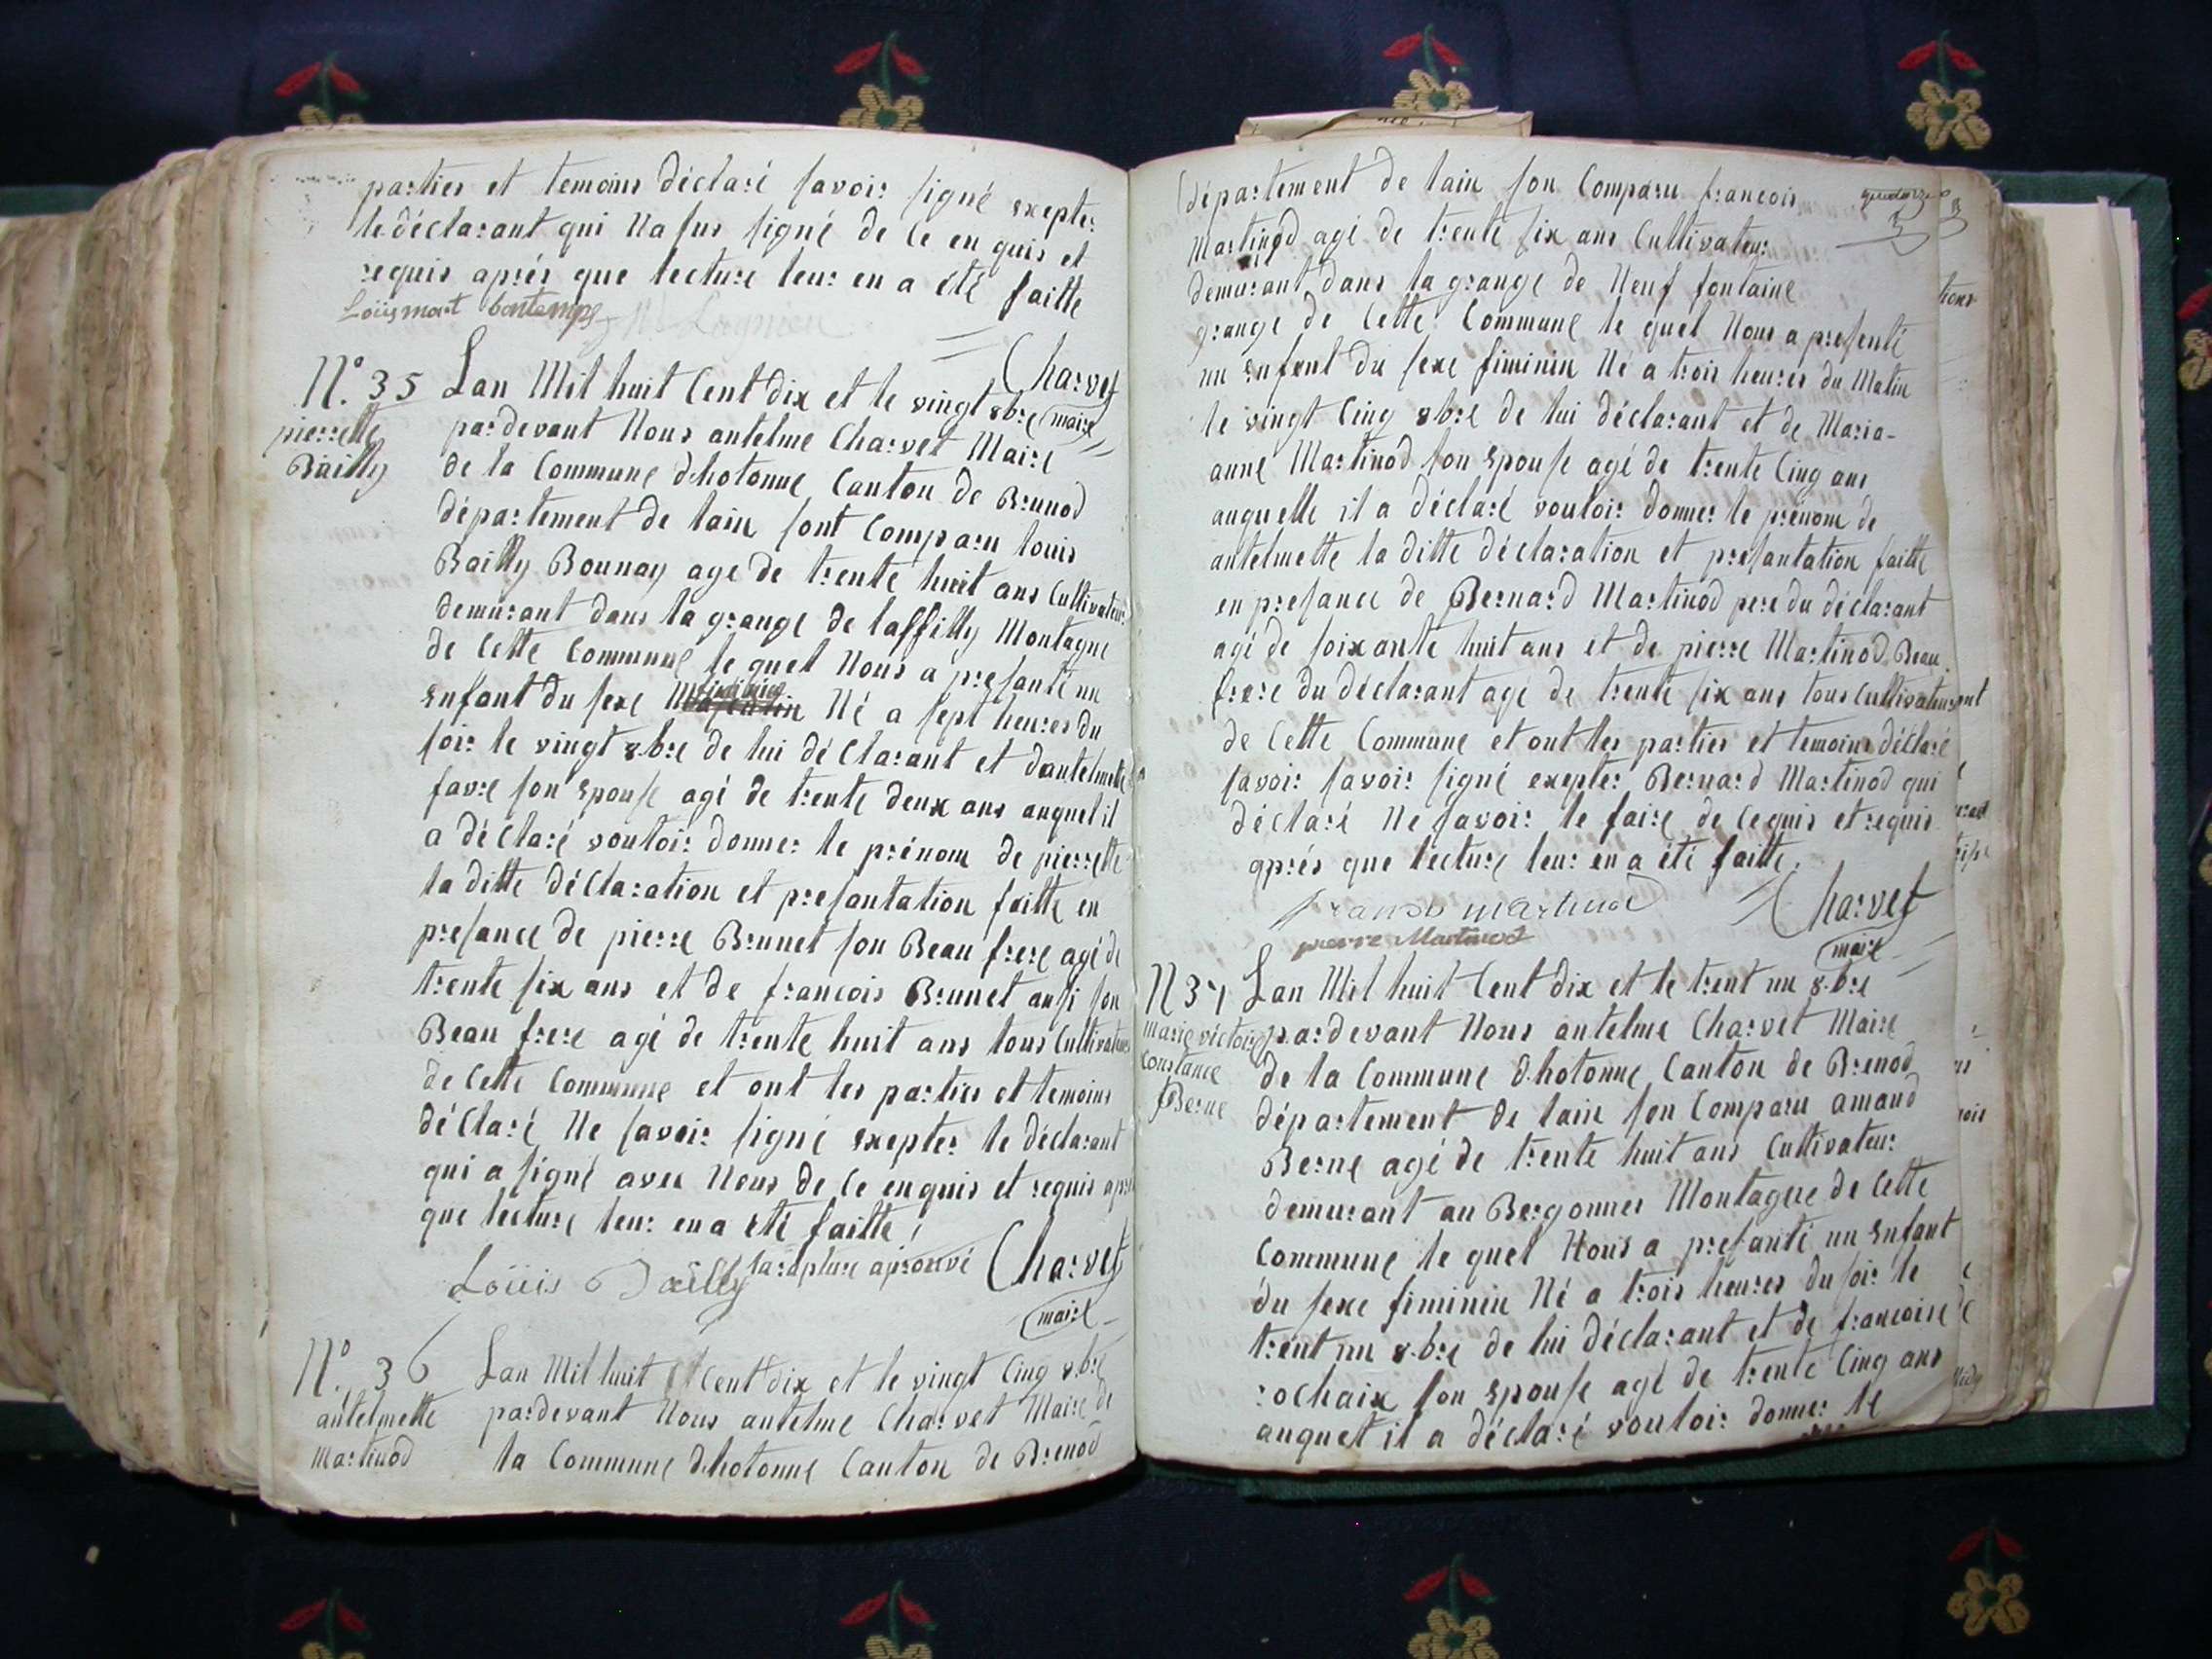 parties et temoins déclaré savoir signé exepter
le déclarant qui Na sus signé de ce en quis et
requis aprés que lecture leur en a été faitte
Loüis mart bontemps
Charvet
maire
N.° 35
pierrette
Bailly
Lan Mil huit Cent dix et le vingt 8.bre
pardevant Nous antelme Charvet Maire
de la Commune d.hotonne Canton de Brunod
département de lain sont Comparu louis
Bailly Bounay age de trente huit ans Cultivateur
demurant dans la grange de laffilly Montagne
de Cette Commune le quel Nous a presanté un
Enfant du sexe fiminin Né a sept heures du
soir le vingt 8.bre de lui déClarant et dantelmette
favre son Epouse agé de trente deux ans auquel il
a déClaré vouloir donner le prénom de pierrette
la ditte déClaration et presantation faitte en
presance de pierre Brunet son Beau frere agé de
trente six ans et de francois Brunet ausi son
Beau frere agé de trente huit ans tous Cultivateurs
de Cette Commune et ont les parties et temoins
déClaré Ne savoir signé exepter le déclarant
qui a signé avec Nous de Ce enquis et requis apré
que lecture leur en a eté faitte
Loüis Bailly
la rapture aprouvé
Charvet
maire
N.° 36
antelmette
Martinod
Lan Mil huit Cent dix et le vingt Cinq 8.bre
pardevant Nous antelme Charvet Maire de
la Commune d.hotonne Canton de Brenod
département de lain son Comparu francois
Martinod agé de trente six ans Cultivateur
demurant dans la grange de Neuf fontaine
grange de Cette Commune le quel Nous a presenté
un enfent du sexe fiminin Né a trois heures du Matin
le vingt Cinq 8bre de lui déclarant et de Maria-
anne Martinod son Epouse agé de trente Cinq ans
auquelle il a déclaré vouloir donner le prénom de
antelmette la ditte déclaration et presantation faitte
en presance de Bernard Martinod pere du déclarant
agé de soixante huit ans et de pierre Martinod Beau
frere du déclarant agé de trente six ans tous Cultivateurs
de Cette Commune et ont les parties et temoins déclaré
savoir savoir signé exepter Bernard Martinod qui
déclaré Ne savoir le faire de cequis et requis
aprés que lecture leur en a été faitte.
francois martinod
pierre Martinod
Charvet
maire
N 37
marie victoire
Constance
Berne
Lan Mil huit Cent dix et le trent un 8.bre
pardevant Nous antelme Charvet Maire
de la Commune d.hotonne Canton de Brenod
département de lain son Comparu amand
Berne agé de trente huit ans Cultivateur
demurant au Bergonnes Montagne de Cette
Commune le quel Nous a presanté un Enfant
du sexe fiminin Né a trois heures du soir le
trent un 8.bre de lui déclarant et de francoise
rochaix son Epouse agé de trente Cinq ans
auquel il a déClaré vouloir donner le